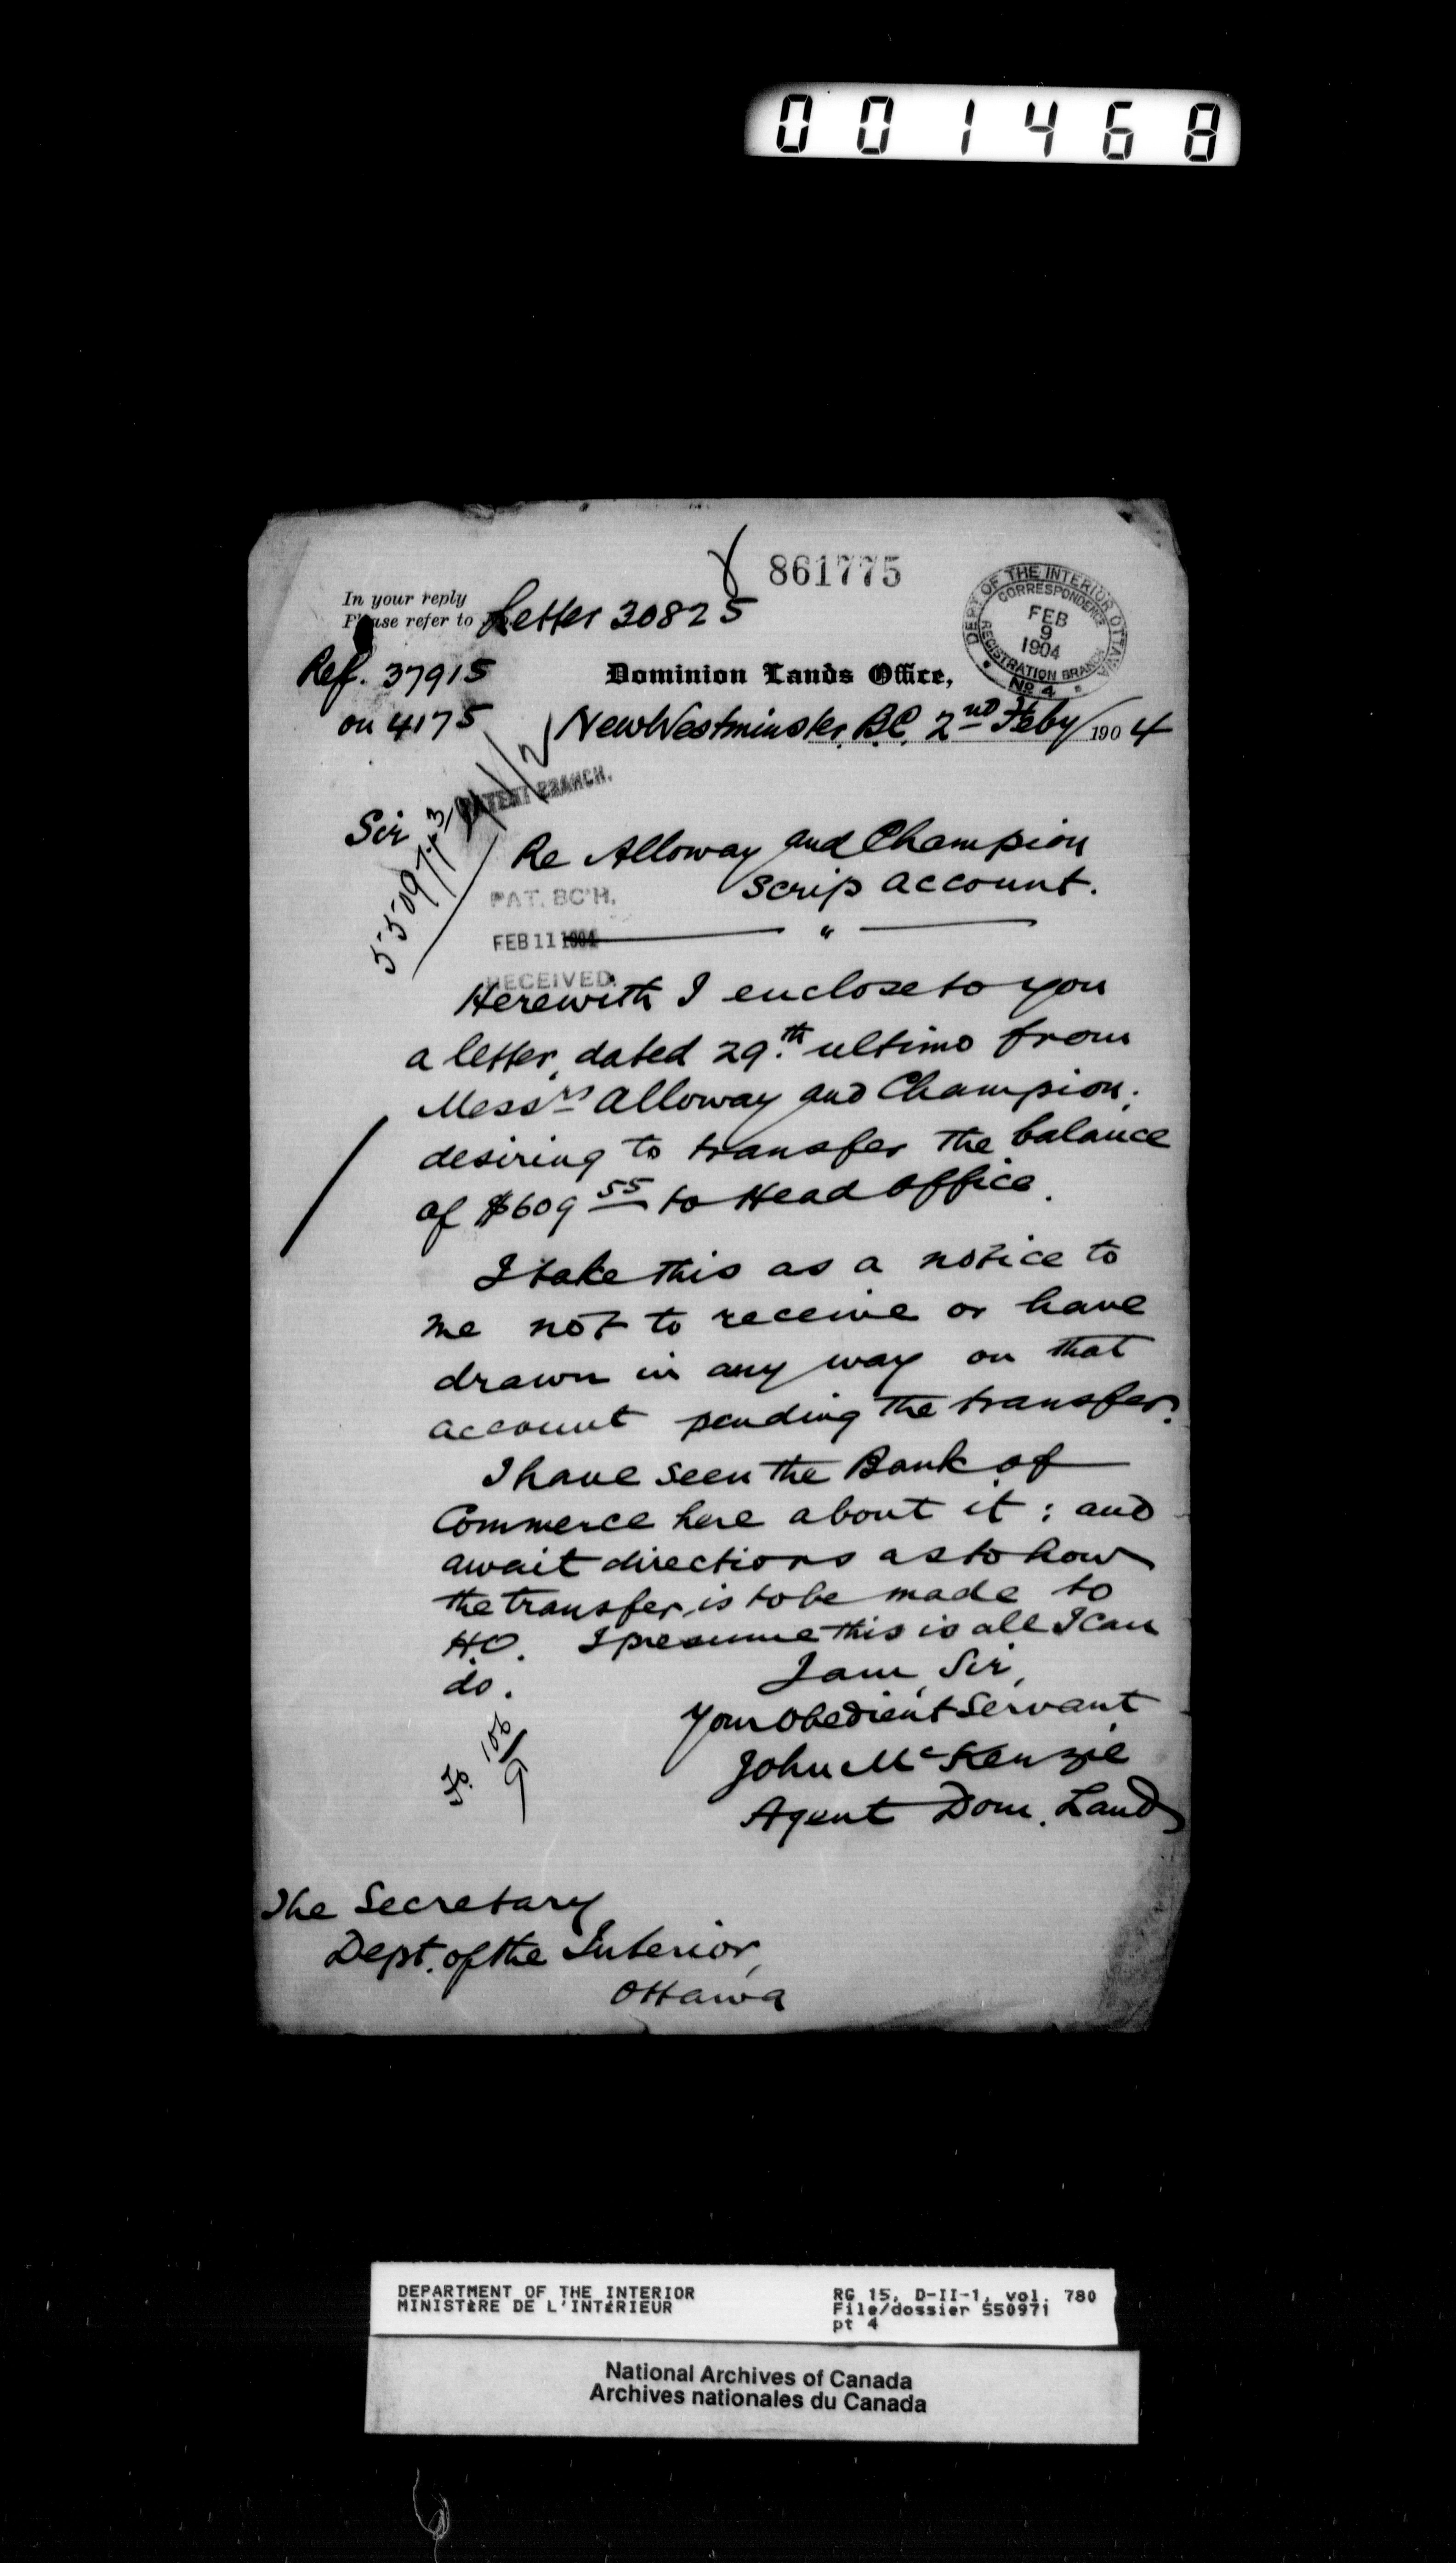 001468
861775
In your reply
Please refer to Letter 30825
Ref. 37915
on 4175
DEPT OF THE INTERIOR OTTAWA
CORRESPONDENCE
FEB
9
1904
REGISTRATION BRANCH
No 4
Dominion Lands Office,
New Westminster, B.C. 2nd Feby 1904
PATENT BRANCH.
Sir
550971
Re Alloway and Champion
Scrip account.
PAT. BC'H.
FEB 11 1904
"
RECEIVED.
Herewith I enclose to you
a letter, dated 29th. ultimo from
Messrs Alloway and Champion;
desiring to transfer the balance
of $609 55 to Head Office.
I take this as a notice to
me not to receive or have
drawn in any way on that
account pending the transfer.
I have seen the Bank of
Commerce here about it; and
await directions as to how
the transfer is to be made to
H.O. I presume this is all I can
do.
I am, Sir,
Your obedient Servant
John McKenzie
Agent Dom. Lands
The Secretary
Dept. of the Interior,
Ottawa
DEPARTMENT OF THE INTERIOR
MINISTÈRE DE L'INTÉRIEUR
RG 15, D-II-1, vol. 780
File/dossier 550971
pt 4
National Archives of Canada
Archives nationales du Canada